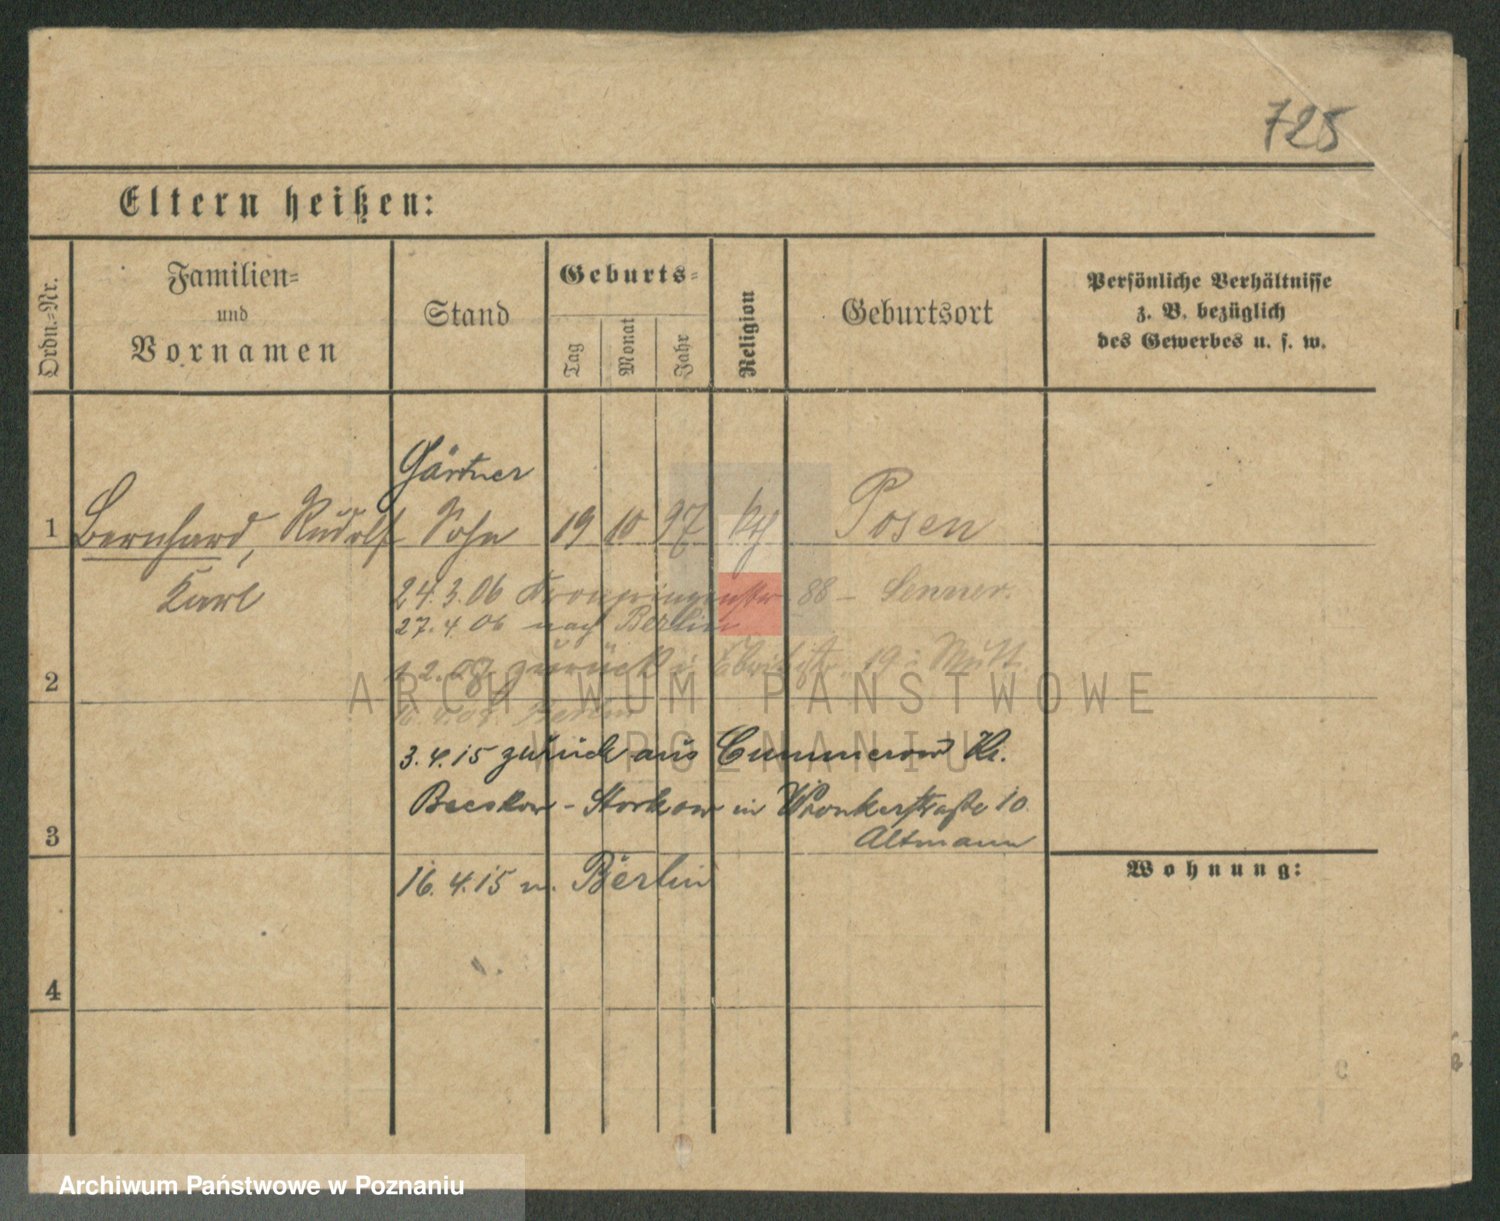 725
Eltern heißen:
Ordn.-Nr.
Familien-
und
Vornamen
Stand
Geburts-
Tag
Monat
Jahr
Religion
Geburtsort
Persönliche Verhältnisse
z. B. bezüglich
des Gewerbes u. s. w.
Gärtner
1 Bernhard, Rudolf Sohn 19 10 97 Posen
Karl
24.3.06 Kronprinzenstr 88 – Senner.
27.4.06 nach Berlin
2
zurück 19
Berlin
ARCHIWUM PAŃSTWOWE
W POZNANIU
3.4.15 zurück aus Cummerow Kr.
Beeskow - Storkow in Wronkerstraße 10
3 Altmann
Wohnung:
16.4.15 n. Berlin
4
Archiwum Państwowe w Poznaniu